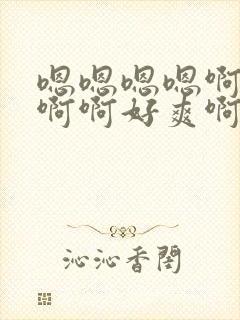 嗯嗯嗯嗯啊
啊啊好爽啊
沁沁香閣